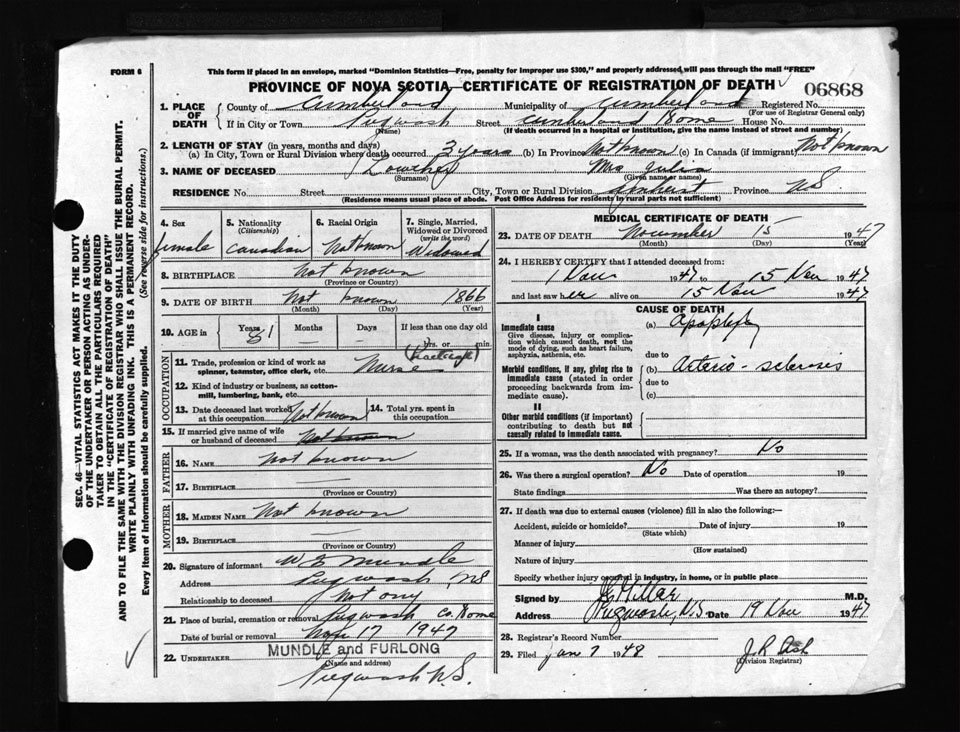 FORM 6
This form if placed in an envelope, marked "Dominion Statistics—Free, penalty for improper use $300," and properly addressed, will pass through the mail "FREE"
PROVINCE OF NOVA SCOTIA—CERTIFICATE OF REGISTRATION OF DEATH
06868
1. PLACE OF DEATH
County of Cumberland Municipality of Cumberland Registered No.
(For use of Registrar General only)
If in City or Town Pugwash Street Cumberland Home House No.
(Name) (If death occurred in a hospital or institution, give the name instead of street and number)
2. LENGTH OF STAY (in years, months and days)
(a) In City, Town or Rural Division where death occurred 3 years (b) In Province Not known (c) In Canada (if immigrant) Not known
3. NAME OF DECEASED Mrs Julia
(Surname) (Given name or names)
RESIDENCE No. Street City, Town or Rural Division Amherst Province NS
(Residence means usual place of abode. Post Office Address for residents in rural parts not sufficient)
4. Sex
female
5. Nationality
(Citizenship)
Canadian
6. Racial Origin
Not known
7. Single, Married, Widowed or Divorced
(write the word)
Widowed
8. BIRTHPLACE Not known
(Province or Country)
9. DATE OF BIRTH Not known 1866
(Month) (Day) (Year)
10. AGE in Years 81 Months — Days — If less than one day old
hrs. or min.
OCCUPATION
11. Trade, profession or kind of work as spinner, teamster, office clerk, etc. Nurse
12. Kind of industry or business, as cotton-mill, lumbering, bank, etc.
13. Date deceased last worked at this occupation Not known
14. Total yrs. spent in this occupation
15. If married give name of wife or husband of deceased Not known
FATHER
16. NAME Not known
17. BIRTHPLACE —
(Province or Country)
MOTHER
18. MAIDEN NAME Not known
19. BIRTHPLACE —
(Province or Country)
20. Signature of informant Mundle
Address Pugwash NS
Relationship to deceased Not any
21. Place of burial, cremation or removal Pugwash Co. Home
Date of burial or removal Nov 17 1947
22. UNDERTAKER MUNDLE and FURLONG
(Name and address)
Pugwash N.S.
MEDICAL CERTIFICATE OF DEATH
23. DATE OF DEATH November 15 1947
(Month) (Day) (Year)
24. I HEREBY CERTIFY that I attended deceased from:
1 Nov 1947 to 15 Nov 1947
and last saw her alive on 15 Nov 1947
CAUSE OF DEATH
I
Immediate cause
Give disease, injury or complication which caused death, not the mode of dying, such as heart failure, asphyxia, asthenia, etc.
(a) Apoplexy
due to
Morbid conditions, if any, giving rise to immediate cause (stated in order proceeding backwards from immediate cause).
(b) Arterio-sclerosis
due to
(c)
II
Other morbid conditions (if important) contributing to death but not causally related to immediate cause.
25. If a woman, was the death associated with pregnancy? No
26. Was there a surgical operation? No Date of operation 19
State findings Was there an autopsy?
27. If death was due to external causes (violence) fill in also the following:—
Accident, suicide or homicide? Date of injury 19
(State which)
Manner of injury
(How sustained)
Nature of injury
Specify whether injury occurred in industry, in home, or in public place
Signed by Millar M.D.
Address Pugwash, N.S. Date 19 Nov 1947
28. Registrar's Record Number
29. Filed Jan 7 1948 J. R. Ash
(Division Registrar)
SEC. 46—VITAL STATISTICS ACT MAKES IT THE DUTY
OF THE UNDERTAKER OR PERSON ACTING AS UNDER-
TAKER TO OBTAIN ALL THE PARTICULARS REQUIRED
IN THE "CERTIFICATE OF REGISTRATION OF DEATH"
AND TO FILE THE SAME WITH THE DIVISION REGISTRAR WHO SHALL ISSUE THE BURIAL PERMIT.
WRITE PLAINLY WITH UNFADING INK. THIS IS A PERMANENT RECORD.
Every item of information should be carefully supplied. (See reverse side for instructions.)